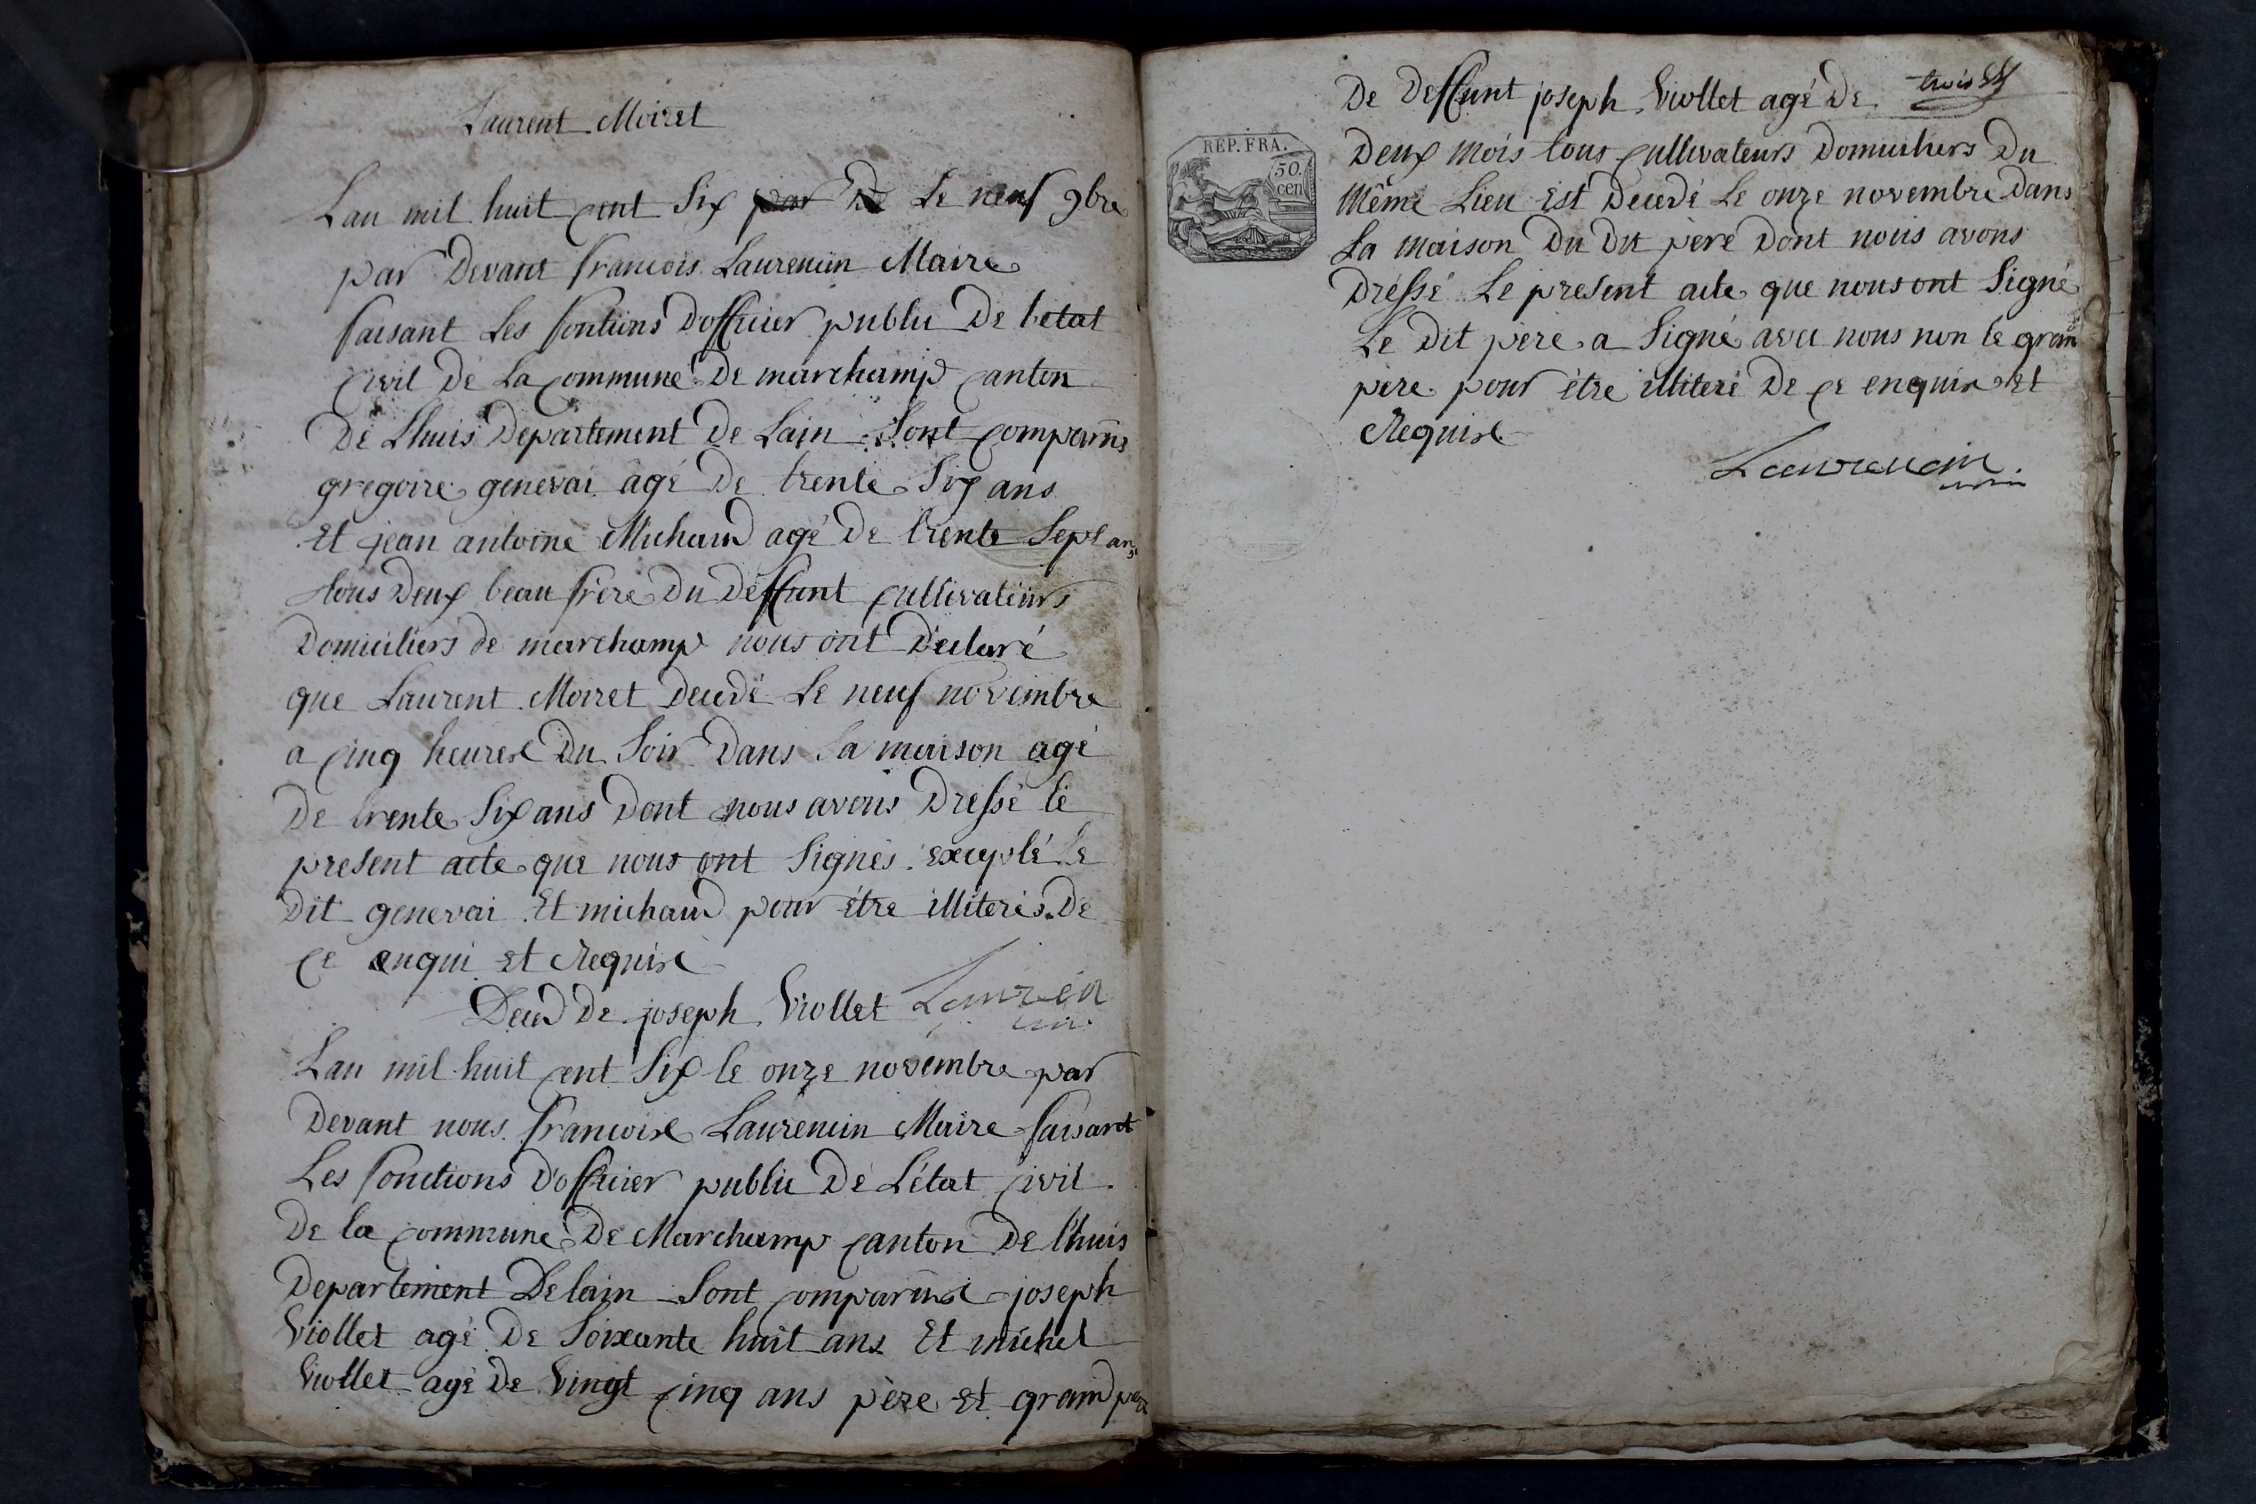 Laurent Moiret
Lan mil huit cent Six par De Le neuf 9bre
par Devant francois Laurencin Maire
faisant Les fontions Dofficier public De letat
Civil De La Commune De marchamp Canton
De Lhuis Departement De Lain Sont Comparus
gregoire genevai agé De trente Six ans
Et jean antoine Michaud agé De trente Sept ans
tous Deux beau frere Du Deffunt Cultivateurs
Domiciliers de marchamp nous ont Déclaré
que Laurent Moiret Decedé Le neuf novembre
a Cinq heures Du Soir Dans Sa maison agé
De trente Six ans Dont nous avons Dressé le
present acte que nous ont Signés excepté Le
Dit genevai Et michaud pour être illiterés De
Ce enqui et Requise
Deces De joseph Viollet Laurencin
Lan mil huit Cent Six le onze novembre par
Devant nous francois Laurencin Maire faisant
Les fonctions D'officier public De L'état Civil
De la Commune De Marchamp Canton De lhuis
Departement De lain Sont Comparus joseph
Viollet agé De Soixante huit ans Et michel
Viollet agé De Vingt Cinq ans père Et grand père
De Deffunt joseph Viollet agé De trois
REP. FRA.
50.
cen
Deux mois tous Cultivateurs Domiciliers Du
Même Lieu Est Decedé Le onze novembre Dans
La maison Du Dit père Dont nous avons
Dréssé Le present acte que nous ont Signé
Le Dit père a Signé avec nous non le grand
père pour être illiteré De Ce enquis Et
Requise
Laurencin